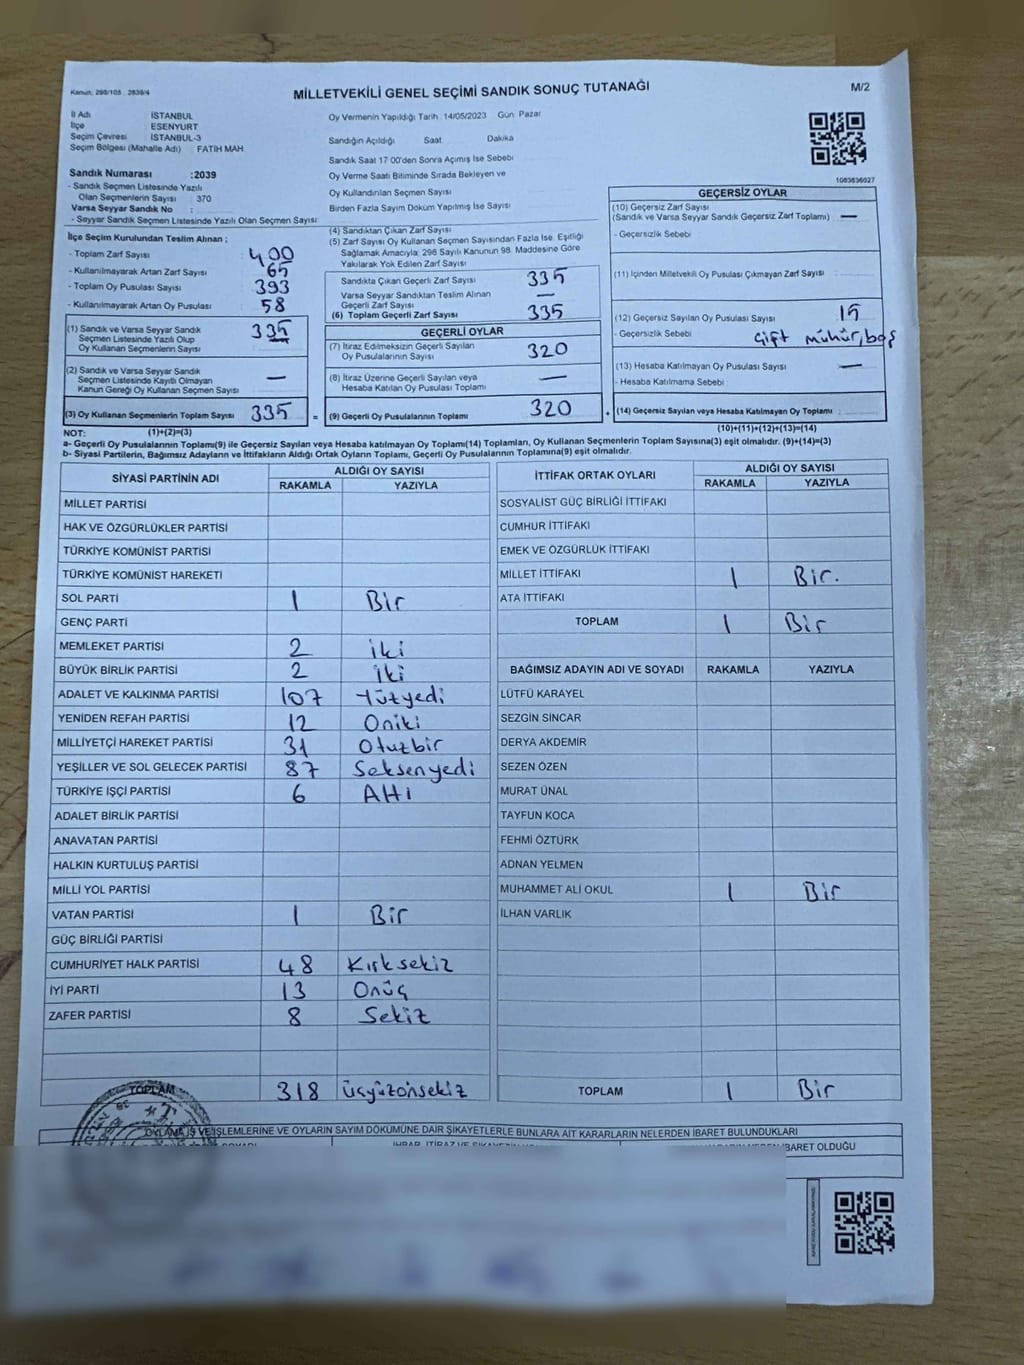 Kanun: 298/105 , 2839/4
MİLLETVEKİLİ GENEL SEÇİMİ SANDIK SONUÇ TUTANAĞI
M/2
İl Adı : İSTANBUL
İlçe : ESENYURT
Seçim Çevresi : İSTANBUL-3
Seçim Bölgesi (Mahalle Adı) : FATİH MAH.
Sandık Numarası :2039
- Sandık Seçmen Listesinde Yazılı
Olan Seçmenlerin Sayısı : 370
Varsa Seyyar Sandık No :
- Seyyar Sandık Seçmen Listesinde Yazılı Olan Seçmen Sayısı:
Oy Vermenin Yapıldığı Tarih :14/05/2023 Gün: Pazar
Sandığın Açıldığı Saat Dakika
Sandık Saat 17:00'den Sonra Açımış İse Sebebi
Oy Verme Saati Bitiminde Sırada Bekleyen ve
Oy Kullandırılan Seçmen Sayısı
Birden Fazla Sayım Döküm Yapılmış İse Sayısı
1083836027
İlçe Seçim Kurulundan Teslim Alınan ;
- Toplam Zarf Sayısı : 400
- Kullanılmayarak Artan Zarf Sayısı : 65
- Toplam Oy Pusulası Sayısı : 393
- Kullanılmayarak Artan Oy Pusulası : 58
(1) Sandık ve Varsa Seyyar Sandık
Seçmen Listesinde Yazılı Olup
Oy Kullanan Seçmenlerin Sayısı : 335
(2) Sandık ve Varsa Seyyar Sandık
Seçmen Listesinde Kayıtlı Olmayan
Kanun Gereği Oy Kullanan Seçmen Sayısı : —
(3) Oy Kullanan Seçmenlerin Toplam Sayısı : 335 =
(4) Sandıktan Çıkan Zarf Sayısı
(5) Zarf Sayısı Oy Kullanan Seçmen Sayısından Fazla İse, Eşitliği
Sağlamak Amacıyla; 298 Sayılı Kanunun 98. Maddesine Göre
Yakılarak Yok Edilen Zarf Sayısı
Sandıkta Çıkan Geçerli Zarf Sayısı : 335
Varsa Seyyar Sandıktan Teslim Alınan
Geçerli Zarf Sayısı : —
(6) Toplam Geçerli Zarf Sayısı : 335
GEÇERLİ OYLAR
(7) İtiraz Edilmeksizin Geçerli Sayılan
Oy Pusulalarının Sayısı : 320
(8) İtiraz Üzerine Geçerli Sayılan veya
Hesaba Katılan Oy Pusulası Toplamı : —
(9) Geçerli Oy Pusulalarının Toplamı : 320 +
GEÇERSİZ OYLAR
(10) Geçersiz Zarf Sayısı
(Sandık ve Varsa Seyyar Sandık Geçersiz Zarf Toplamı) : —
- Geçersizlik Sebebi
(11) İçinden Milletvekili Oy Pusulası Çıkmayan Zarf Sayısı :
(12) Geçersiz Sayılan Oy Pusulası Sayısı : 15
- Geçersizlik Sebebi : Çift mühür, boş
(13) Hesaba Katılmayan Oy Pusulası Sayısı : —
- Hesaba Katılmama Sebebi
(14) Geçersiz Sayılan veya Hesaba Katılmayan Oy Toplamı :
NOT: (1)+(2)=(3)
(10)+(11)+(12)+(13)=(14)
a- Geçerli Oy Pusulalarının Toplamı(9) ile Geçersiz Sayılan veya Hesaba katılmayan Oy Toplamı(14) Toplamları, Oy Kullanan Seçmenlerin Toplam Sayısına(3) eşit olmalıdır. (9)+(14)=(3)
b- Siyasi Partilerin, Bağımsız Adayların ve İttifakların Aldığı Ortak Oyların Toplamı, Geçerli Oy Pusulalarının Toplamına(9) eşit olmalıdır.
SİYASİ PARTİNİN ADI ALDIĞI OY SAYISI
RAKAMLA YAZIYLA
MİLLET PARTİSİ
HAK VE ÖZGÜRLÜKLER PARTİSİ
TÜRKİYE KOMÜNİST PARTİSİ
TÜRKİYE KOMÜNİST HAREKETİ
SOL PARTİ 1 Bir
GENÇ PARTİ
MEMLEKET PARTİSİ 2 iki
BÜYÜK BİRLİK PARTİSİ 2 iki
ADALET VE KALKINMA PARTİSİ 107 Yüzyedi
YENİDEN REFAH PARTİSİ 12 Oniki
MİLLİYETÇİ HAREKET PARTİSİ 31 Otuzbir
YEŞİLLER VE SOL GELECEK PARTİSİ 87 Seksenyedi
TÜRKİYE İŞÇİ PARTİSİ 6 Altı
ADALET BİRLİK PARTİSİ
ANAVATAN PARTİSİ
HALKIN KURTULUŞ PARTİSİ
MİLLİ YOL PARTİSİ
VATAN PARTİSİ 1 Bir
GÜÇ BİRLİĞİ PARTİSİ
CUMHURİYET HALK PARTİSİ 48 Kırksekiz
İYİ PARTİ 13 Onüç
ZAFER PARTİSİ 8 Sekiz
TOPLAM 318 üçyüzonsekiz
İTTİFAK ORTAK OYLARI ALDIĞI OY SAYISI
RAKAMLA YAZIYLA
SOSYALİST GÜÇ BİRLİĞİ İTTİFAKI
CUMHUR İTTİFAKI
EMEK VE ÖZGÜRLÜK İTTİFAKI
MİLLET İTTİFAKI 1 Bir.
ATA İTTİFAKI
TOPLAM 1 Bir
BAĞIMSIZ ADAYIN ADI VE SOYADI RAKAMLA YAZIYLA
LÜTFÜ KARAYEL
SEZGİN SİNCAR
DERYA AKDEMİR
SEZEN ÖZEN
MURAT ÜNAL
TAYFUN KOCA
FEHMİ ÖZTÜRK
ADNAN YELMEN
MUHAMMET ALİ OKUL 1 Bir
İLHAN VARLIK
TOPLAM 1 Bir
OYLAMA İŞ VE İŞLEMLERİNE VE OYLARIN SAYIM DÖKÜMÜNE DAİR ŞİKAYETLERLE BUNLARA AİT KARARLARIN NELERDEN İBARET BULUNDUKLARI
İBARET OLDUĞU